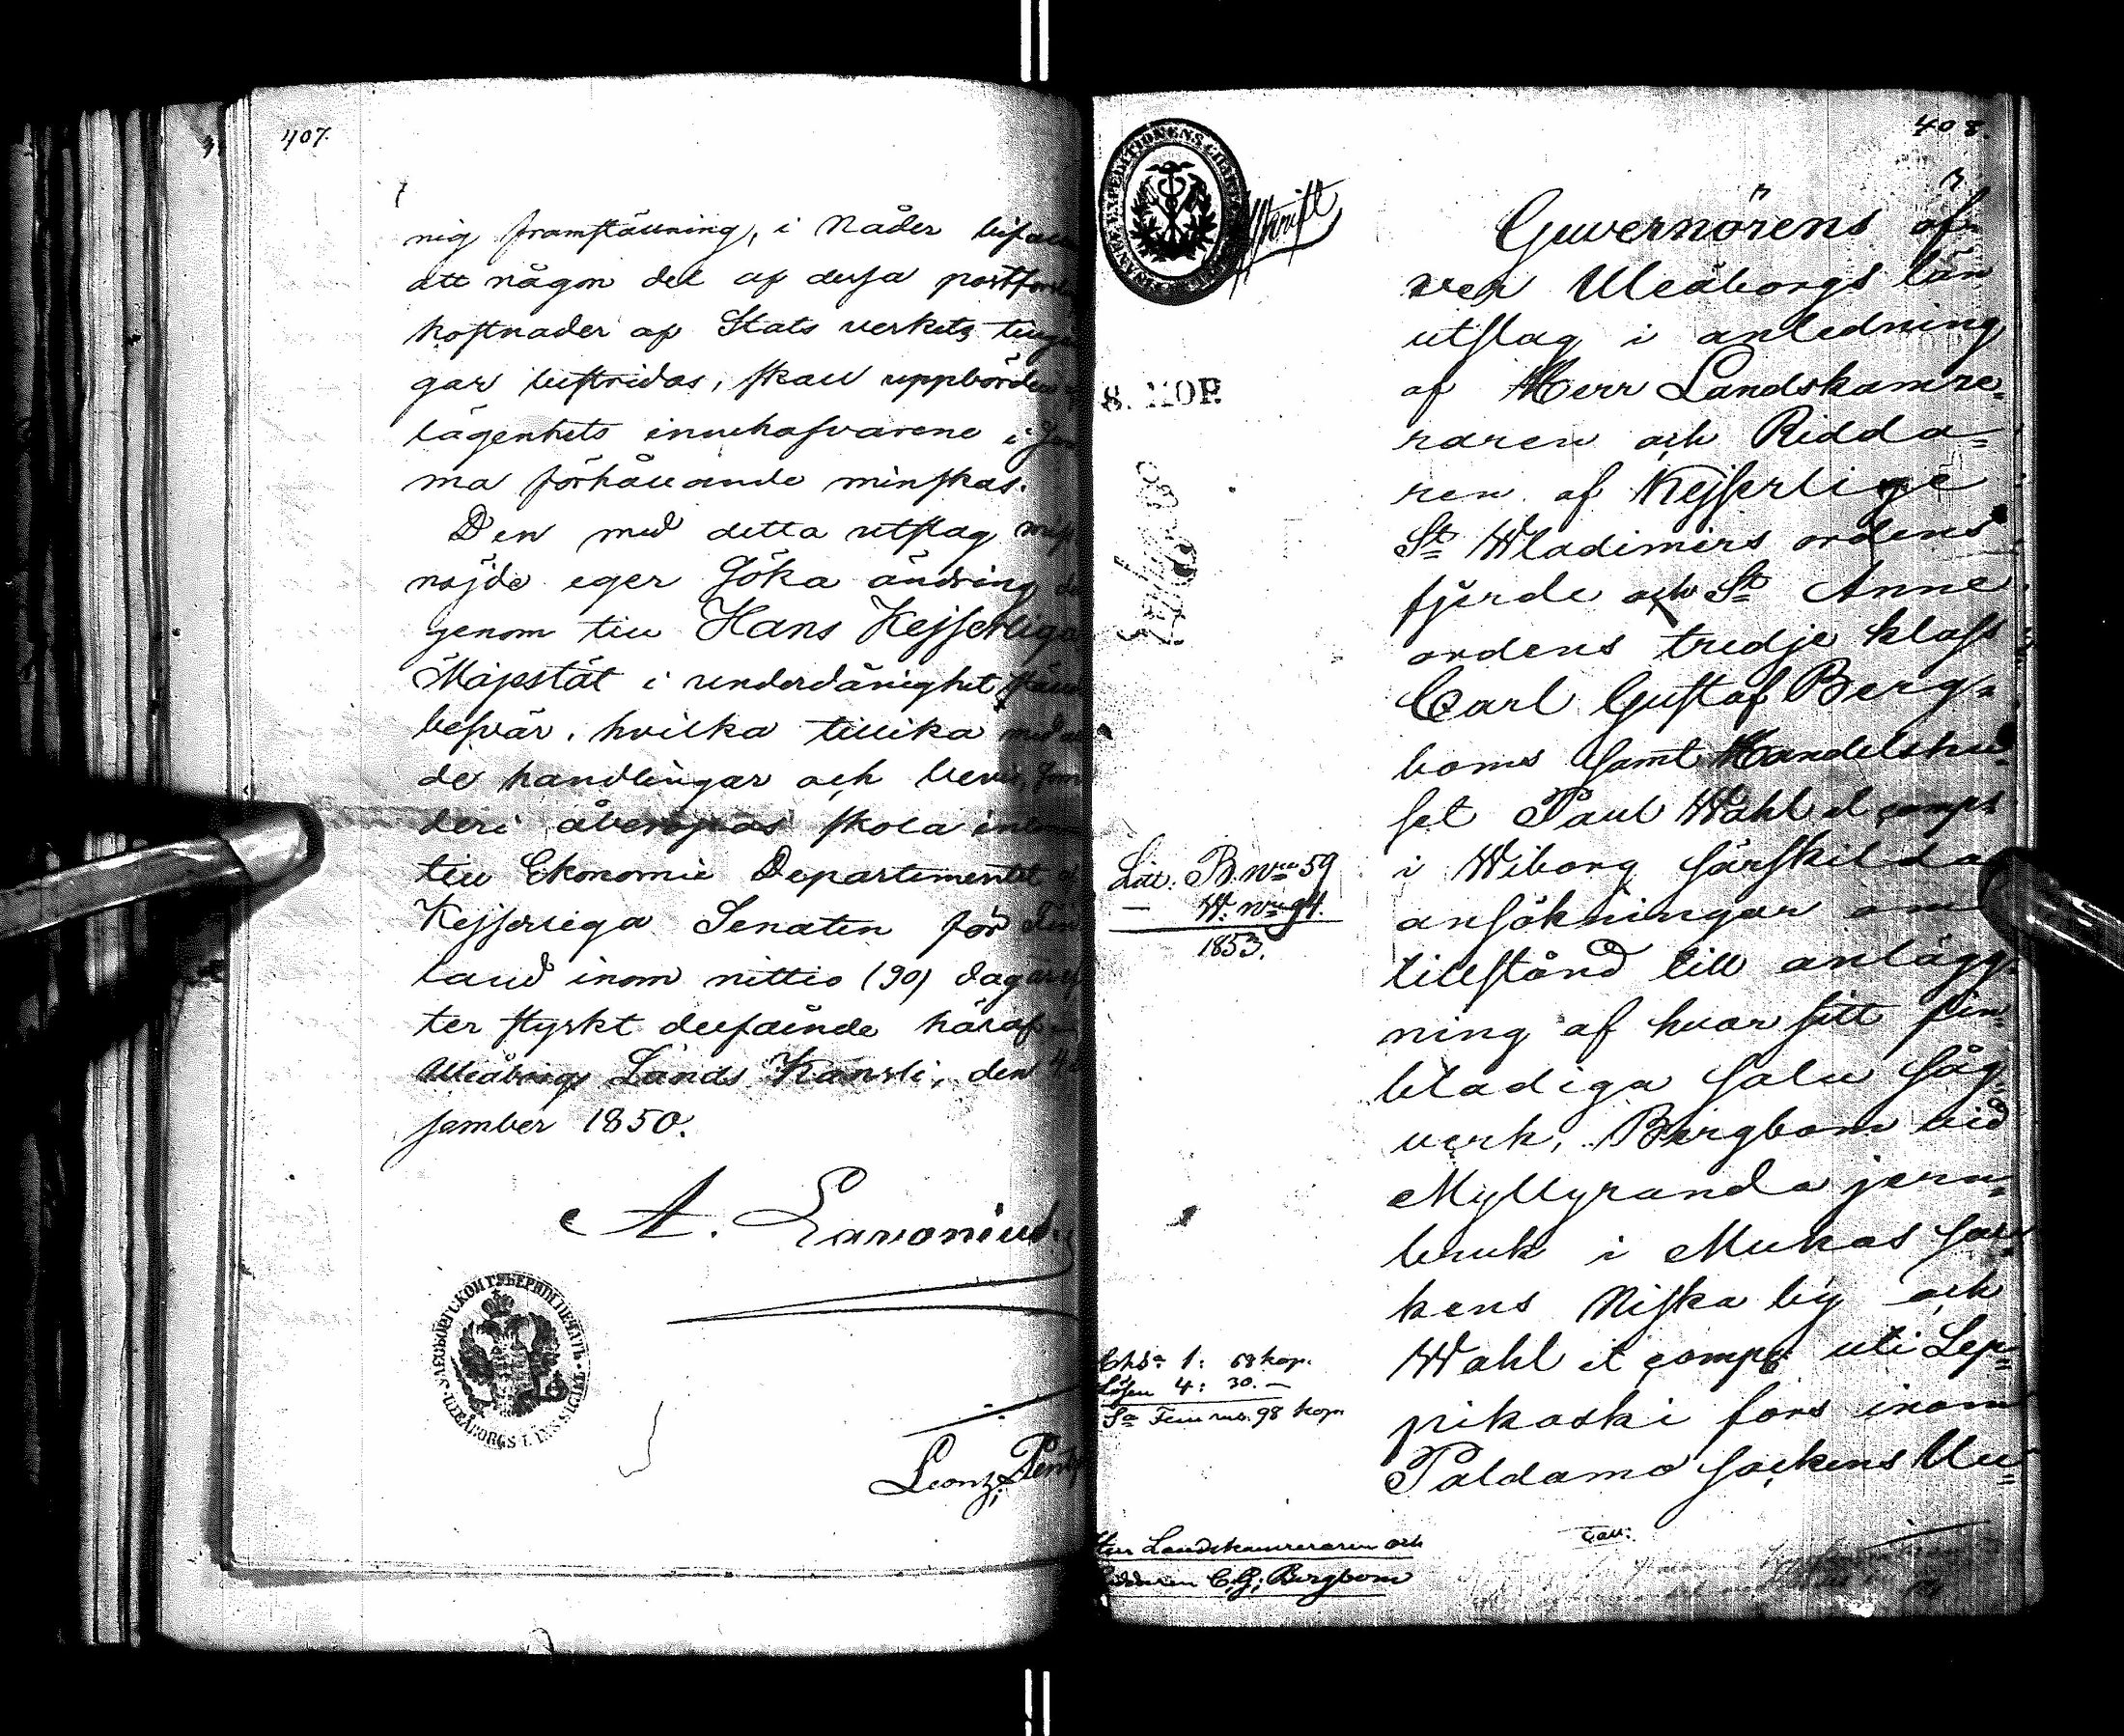 407.
nig framställning, i Nåder bifalles
att någon del af dessa postförings
kostnader af Stats verkets
gar bestridas, skall uppbörden
lägenhets innehafvarene i
ma förhållande minskas.
Den med detta utslag miss
nöjde eger söka ändring
genom till Hans Kejserliga
Majestät i underdånighet
besvär, hvilka tillika
de handlingar och bevis,
deri åberopas skola
till Ekonomie Departementet
Kejserliga Senaten för Fin
land inom nittio (90) dagar ef
ter styrkt delfående häraf.
Uleåborgs Lands Kansli, den
cember 1850.
A. Lavonius
УЛЕОБОРГСКОЙ ГУБЕРНІИ ПЕЧАТЬ
ULEÅBORGS L. INSIGIL
408.
Afskrift
8. KOP.
Guvernörens öf=
ver Uleåborgs län
utslag i anledning
af Herr Landskamre=
raren och Ridda=
ren af Kejserlige
St. Wladimirs ordens
fjerde och St. Anne
ordens tredje klass
Carl Gustaf Berg=
boms samt Handelshu=
set Paul Wahl et comp:s
i Wiborg särskilda
ansökningar om
tillstånd till anlägg=
ning af hvar sitt fin=
bladiga salu såg=
verk, Bergbom vid
Myllyranda jern=
bruk i Muhos soc=
kens Niska by och
Wahl et comp: uti Lep=
pikoski fors inom
Paldamo sockens Ule=
Litt: B. No 59
— W. No 94.
1853.
Chs: 1: 68 kop.
Lösen 4: 30. —
Sa Fem rub. 98 kop.
Herr Landskamreraren och
Riddaren C. G. Bergbom